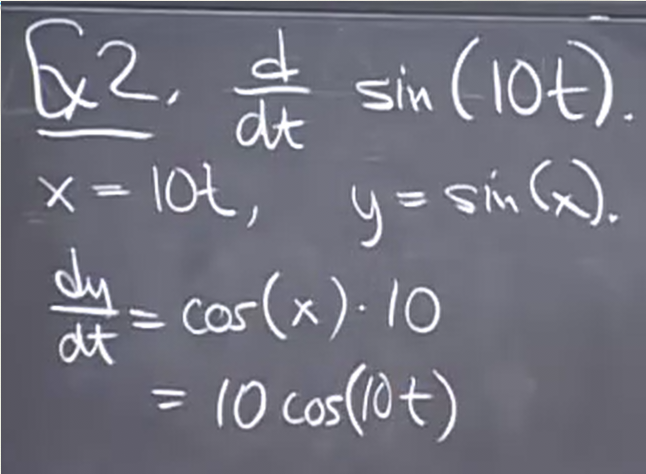 Ex 2. d/dt sin(10t).
x = 10t, y = sin(x).
dy/dt = cos(x) · 10
= 10 cos(10t)